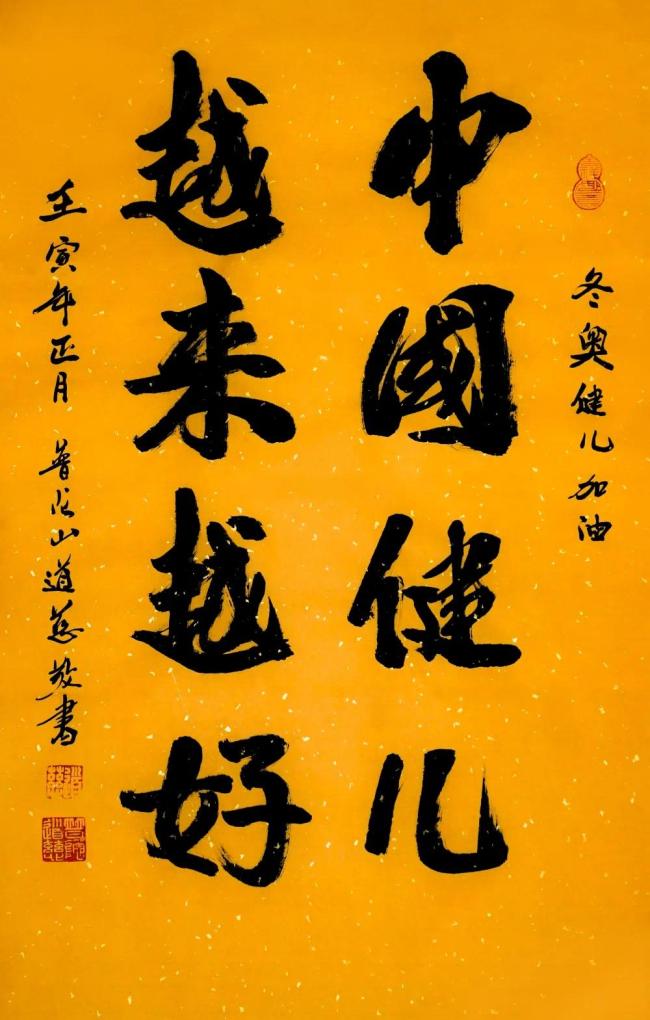 冬奥健儿加油
中國健儿
越来越好
壬寅年正月 普陀山道慈敬書